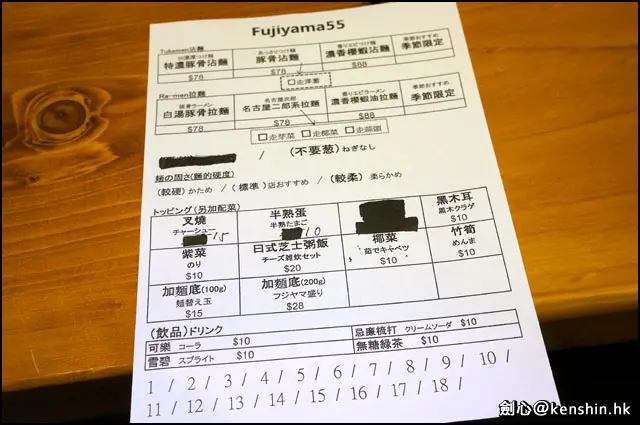 Fujiyama55
Tukemen沾麵
特濃豚骨沾麵 $78
あっさりつけ麺
豚骨沾麵 $78
香りエビつけ麺
濃香櫻蝦沾麵 $88
季節おすすめ
季節限定
□走洋蔥
Re-men拉麵
豚骨ラーメン
白湯豚骨拉麵 $78
名古屋次郎
名古屋二郎系拉麵 $78
香りエビラーメン
濃香櫻蝦油拉麵 $88
季節おすすめ
季節限定
□走芽菜 □走椰菜 □走蒜頭
/ (不要葱) ねぎなし
麺の固さ(麵的硬度)
(較硬) かため / (標準) 店おすすめ / (較柔) 柔らかめ
トッピング(另加配菜)
叉燒
チャーシュー
15
半熟蛋
半熟たまご
10
黒木耳
黒木クラゲ
$10
紫菜
のり
$10
日式芝士粥飯
チーズ雑炊セット
$20
椰菜
茹でキャベツ
$10
竹筍
めんま
$10
加麵底(100g)
麺替え玉
$15
加麵底(200g)
フジヤマ盛り
$28
(飲品)ドリンク
可樂 コーラ $10
忌廉梳打 クリームソーダ $10
雪碧 スプライト $10
無糖綠茶 $10
1 / 2 / 3 / 4 / 5 / 6 / 7 / 8 / 9 / 10 /
11 / 12 / 13 / 14 / 15 / 16 / 17 / 18 /
劍心@kenshin.hk